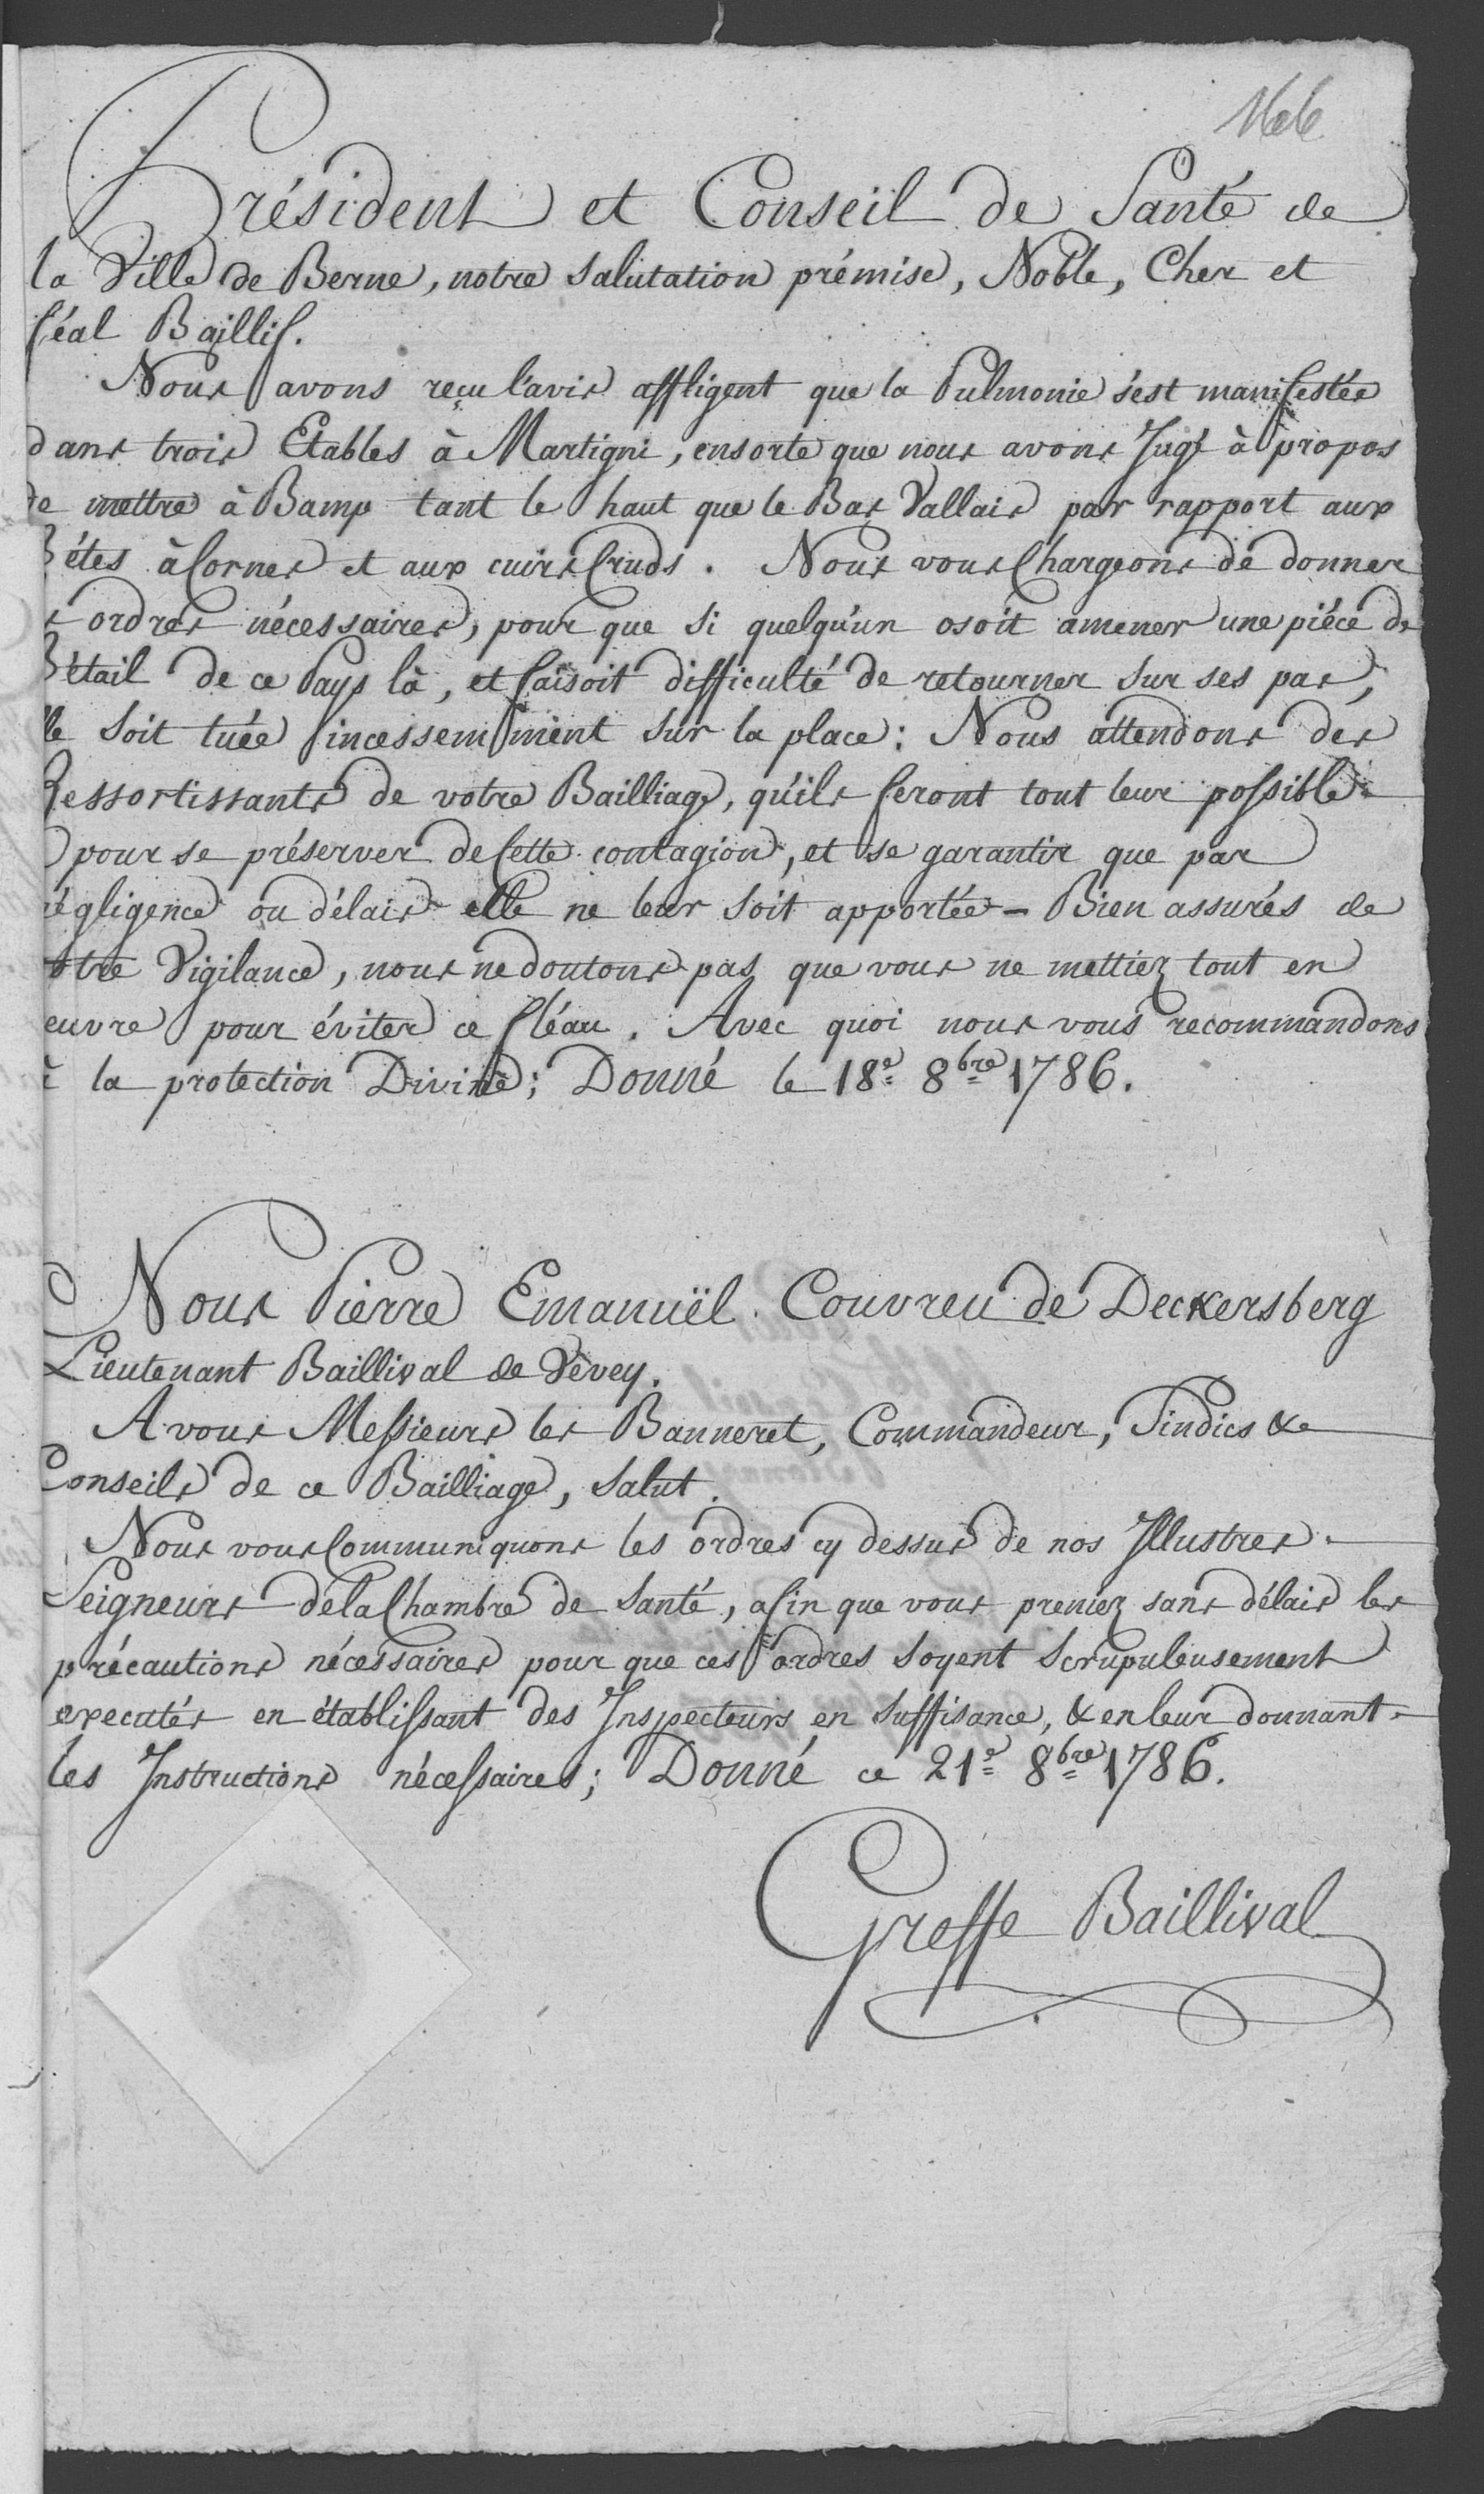 166
Président et Conseil de Santé de
la Ville de Berne, notre salutation prémise, Noble, Cher et
féal Baillif.
Nous avons reçu l'avis affligent que la Pulmonie s'est manifestée
dans trois Etables à Martigni, ensorte que nous avons Jugé à propos
de mettre à Bamp tant le haut que le Bas Vallais par rapport aux
Bétes à Cornes et aux cuirs Cruds. Nous vous Chargeons de donner
s ordres nécessaires, pour que si quelqu'un osoit amener une piéce de
Bétail de ce Pays là, et faisoit difficulté de retourner sur ses pas,
lle soit tuée incessemment sur la place: Nous attendons des
Ressortissants de votre Bailliage, qu'ils feront tout leur possible
pour se préserver de Cette contagion, et se garantir que par
négligence ou délais elle ne leur soit apportée - Bien assurés de
otre Vigilance, nous ne doutons pas que vous ne mettiez tout en
euvre pour éviter ce fléau. Avec quoi nous vous recommandons
à la protection Divine; Donné le 18e 8bre 1786.
Nous Pierre Emanuël Couvreu de Deckersberg
Lieutenant Baillival de Vevey.
A vous Messieurs les Banneret, Commandeur, Sindics &
Conseils de ce Bailliage, salut.
Nous vous Communiquons les ordres cy dessus de nos Illustres
Seigneurs de la Chambre de Santé, afin que vous preniez sans délais les
précautions nécessaires pour que ces ordres soyent scrupuleusement
executés en établissant des Inspecteurs en suffisance, & en leur donnant
les Instructions nécessaires; Donné ce 21e 8bre 1786.
Greffe Baillival